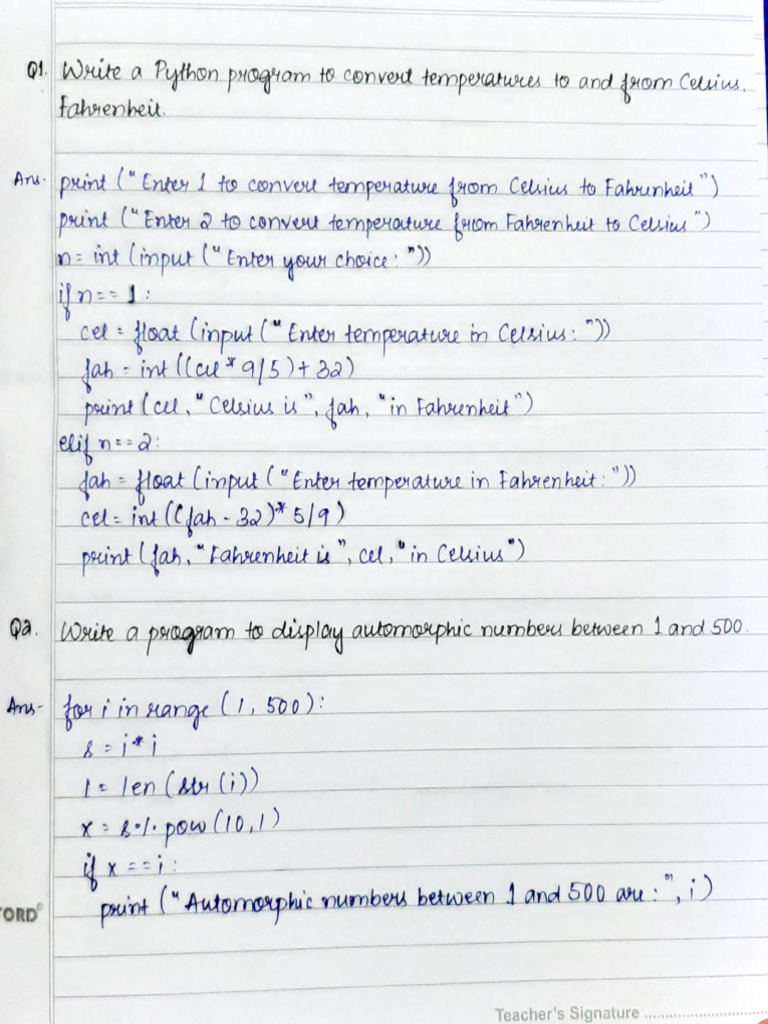 Q1. Write a Python program to convert temperatures to and from Celsius,
Fahrenheit.
Ans- print ("Enter 1 to convert temperature from Celsius to Fahrenheit")
print ("Enter 2 to convert temperature from Fahrenheit to Celsius")
n= int (input ("Enter your choice: "))
if n== 1:
cel = float (input ("Enter temperature in Celsius: "))
fah = int ((cel * 9/5) + 32)
print (cel, "Celsius is", fah, "in Fahrenheit")
elif n==2:
fah = float (input ("Enter temperature in Fahrenheit: "))
cel= int ((fah - 32)* 5/9)
print (fah, "Fahrenheit is", cel, "in Celsius")
Q2. Write a program to display automorphic numbers between 1 and 500.
Ans- for i in range (1, 500):
s = i* i
l = len (str (i))
x = s % pow (10, l)
if x == i:
print ("Automorphic numbers between 1 and 500 are: ", i)
ORD®
Teacher's Signature ....................